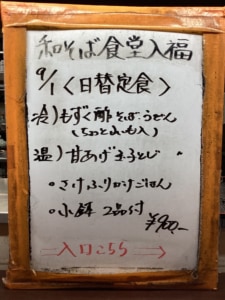 和そば食堂入福
9/1〈日替定食〉
冷)もずく酢そば・うどん
(ちょっと小いも入)
温)甘あげ玉子とじ
・さけふりかけごはん
・小鉢 2品付
¥900.-
⇒入口こちら→